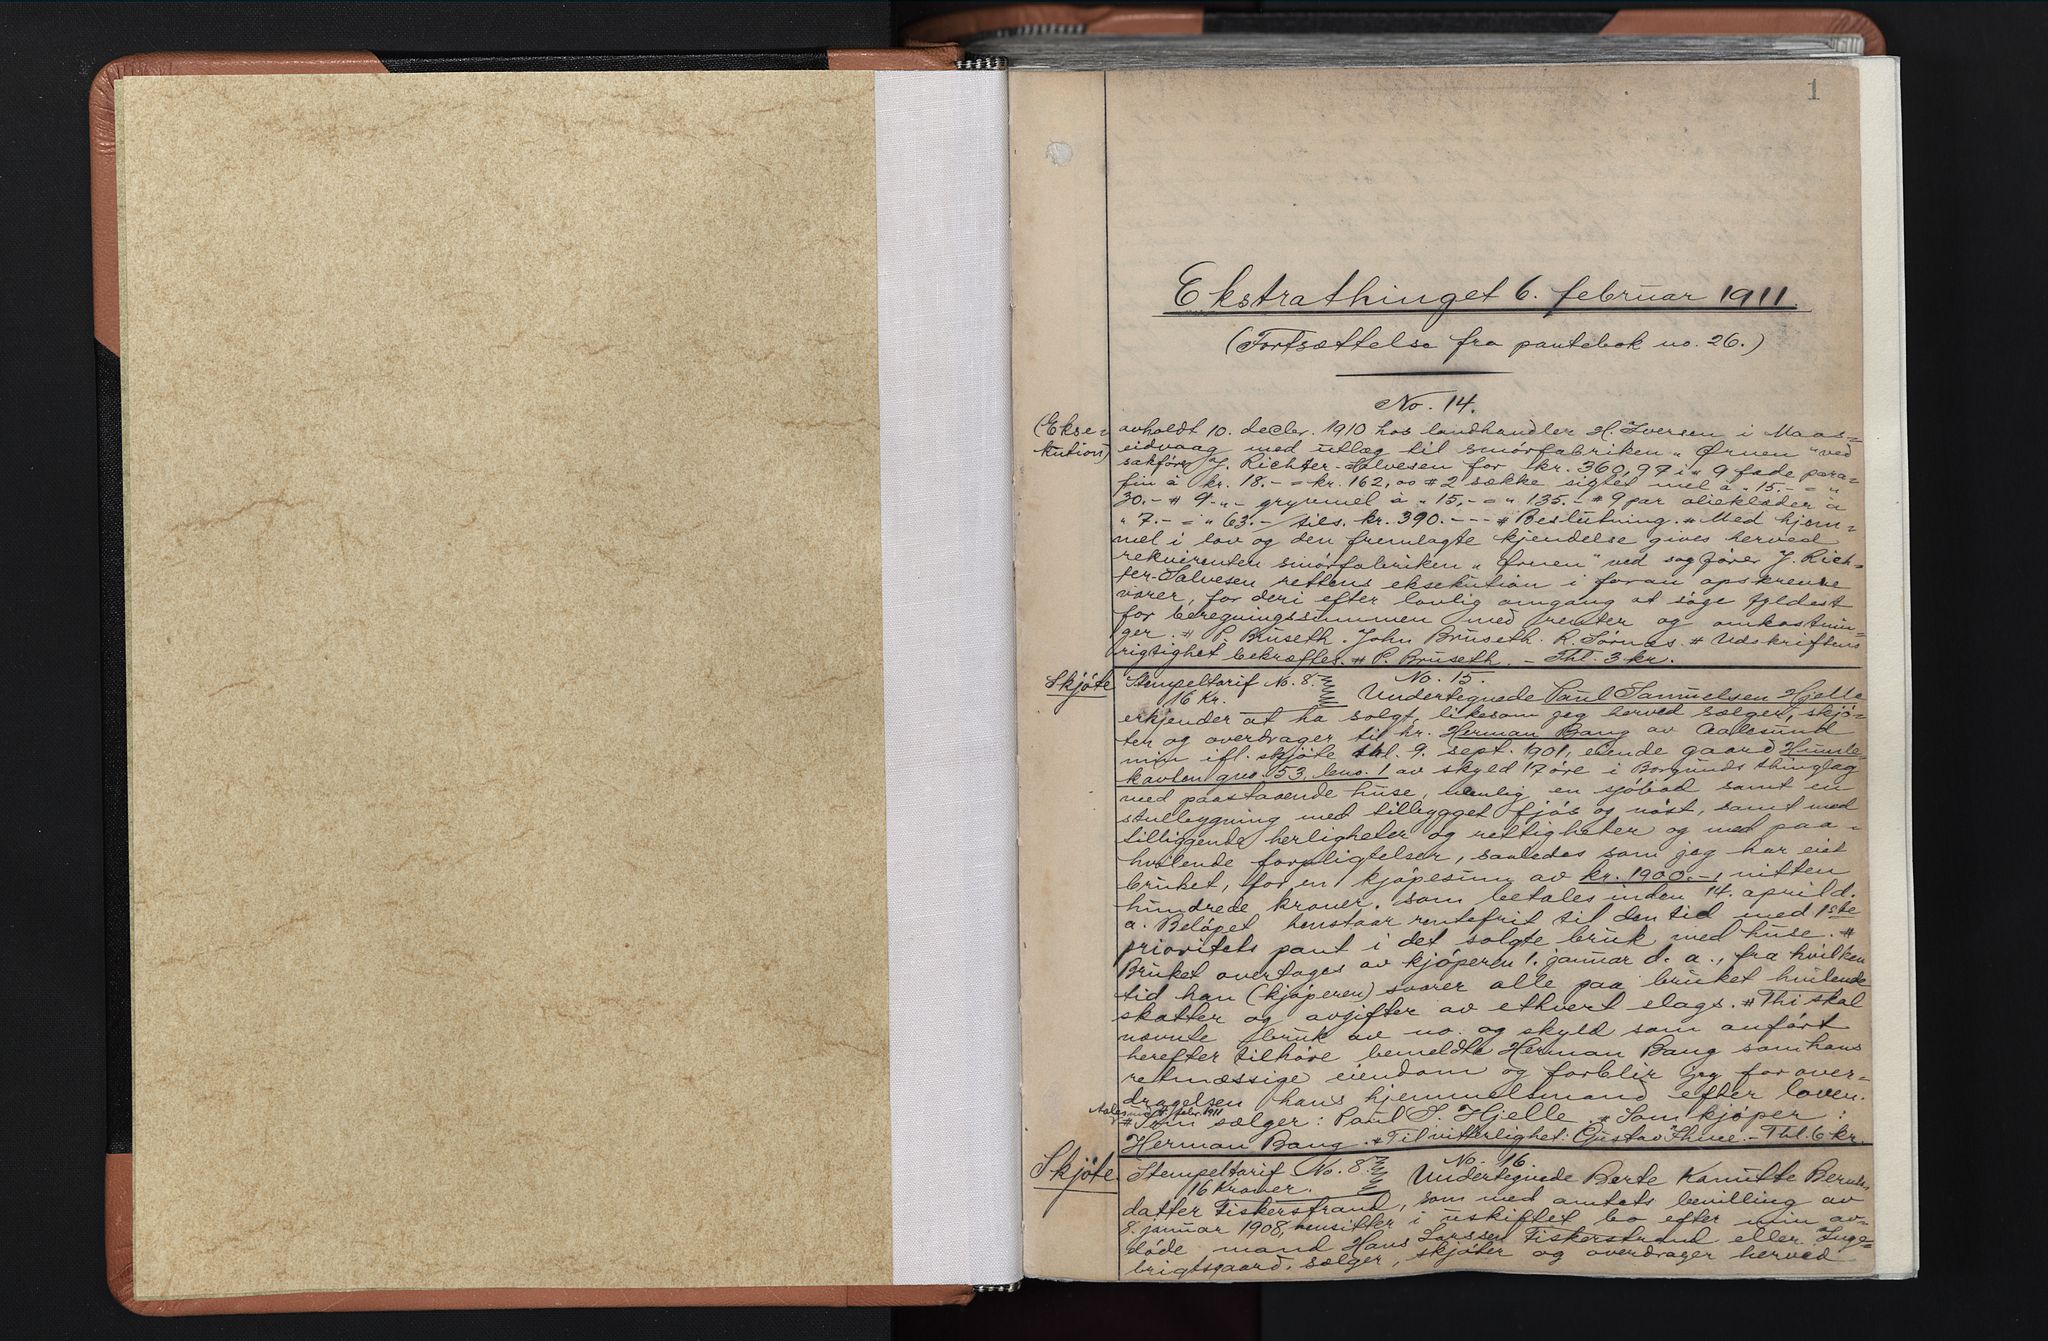 1
Ekstrathinget 6. februar 1911.
(Fortsættelse fra pantebok no. 26.)
No. 14.
(Ekse- avholdt 10. decbr. 1910 hos landhandler H. Iversen i Maas-
kution) eidvaag med utlæg til smörfabriken "Ørnen" ved
sakförer J. Richter-Salvesen for kr. 360,97 i " 9 fade para-
fin à kr. 18.- = kr. 162,00 # 2 sække sigtet mel à " 15.- = "
30.- # 9 -"- grynmel à " 15,- = " 135.- # 9 par olieklæder à
" 7.- = " 63.- / tils. kr. 390.- -- # Beslutning. # Med hjem-
mel i lov og den fremlagte kjendelse gives herved
rekvirenten smörfabriken "Ørnen" ved sagförer J. Rich-
ter-Salvesen rettens eksekution i foran opskrevne
varer, for deri efter lovlig omgang at söge fyldest
for beregningssummen med renter og omkostnin-
ger. # P. Bruseth. John Bruseth. R. Sørnes. # Udskriftens
rigtighet bekræftes. # P. Bruseth. - Thl. 3 kr.
No. 15.
Skjöte Stempeltarif No. 8. Undertegnede Paul Samuelsen Hjelle
16 Kr.
erkjender at ha solgt, likesom jeg herved sælger, skjö-
ter og overdrager til hr. Herman Bang av Aalesund
min ifl. skjöte thl. 9. sept. 1901, eiende gaard Humle-
kavlen gno. 53, bno. 1 av skyld 17 öre i Borgunds thinglag
med paastaaende huse, nemlig en sjöbod samt en
stuebygning med tilbygget fjös og nöst, samt med
tilliggende herligheter og rettigheter og med paa-
hvilende forpligtelser, saaledes som jeg har eiet
bruket, for en kjöpesum av kr. 1900.-, nitten
hundrede kroner, som betales inden 14. april d.
a. Belöpet henstaar rentefrit til den tid med 1ste
prioritets pant i det solgte bruk med huse. #
Bruket overtages av kjöperen 1. januar d. a., fra hvilken
tid han (kjöperen) svarer alle paa bruket hvilende
skatter og avgifter av ethvert slags. # Thi skal
nævnte bruk av no. og skyld som anfört
herefter tilhöre bemeldte Herman Bang som hans
retmæssige eiendom og forblir jeg for over-
dragelsen hans hjemmelsmand efter loven.
Aalesund 4. febr. 1911
# Som sælger: Paul S. Hjelle. # Som kjöper:
Herman Bang. # Til vitterlighet: Gustav Thue. - Thl. 6 kr.
No. 16.
Skjöte Stempeltarif No. 8. Undertegnede Berte Knutte Bernts
16 Kroner.
datter Fiskerstrand, som med amtets bevilling av
8. januar 1908, hensitter i uskiftet bo efter min av-
döde mand Hans Larssen Fiskerstrand eller Inge-
brigtsgaard, sælger, skjöter og overdrager herved